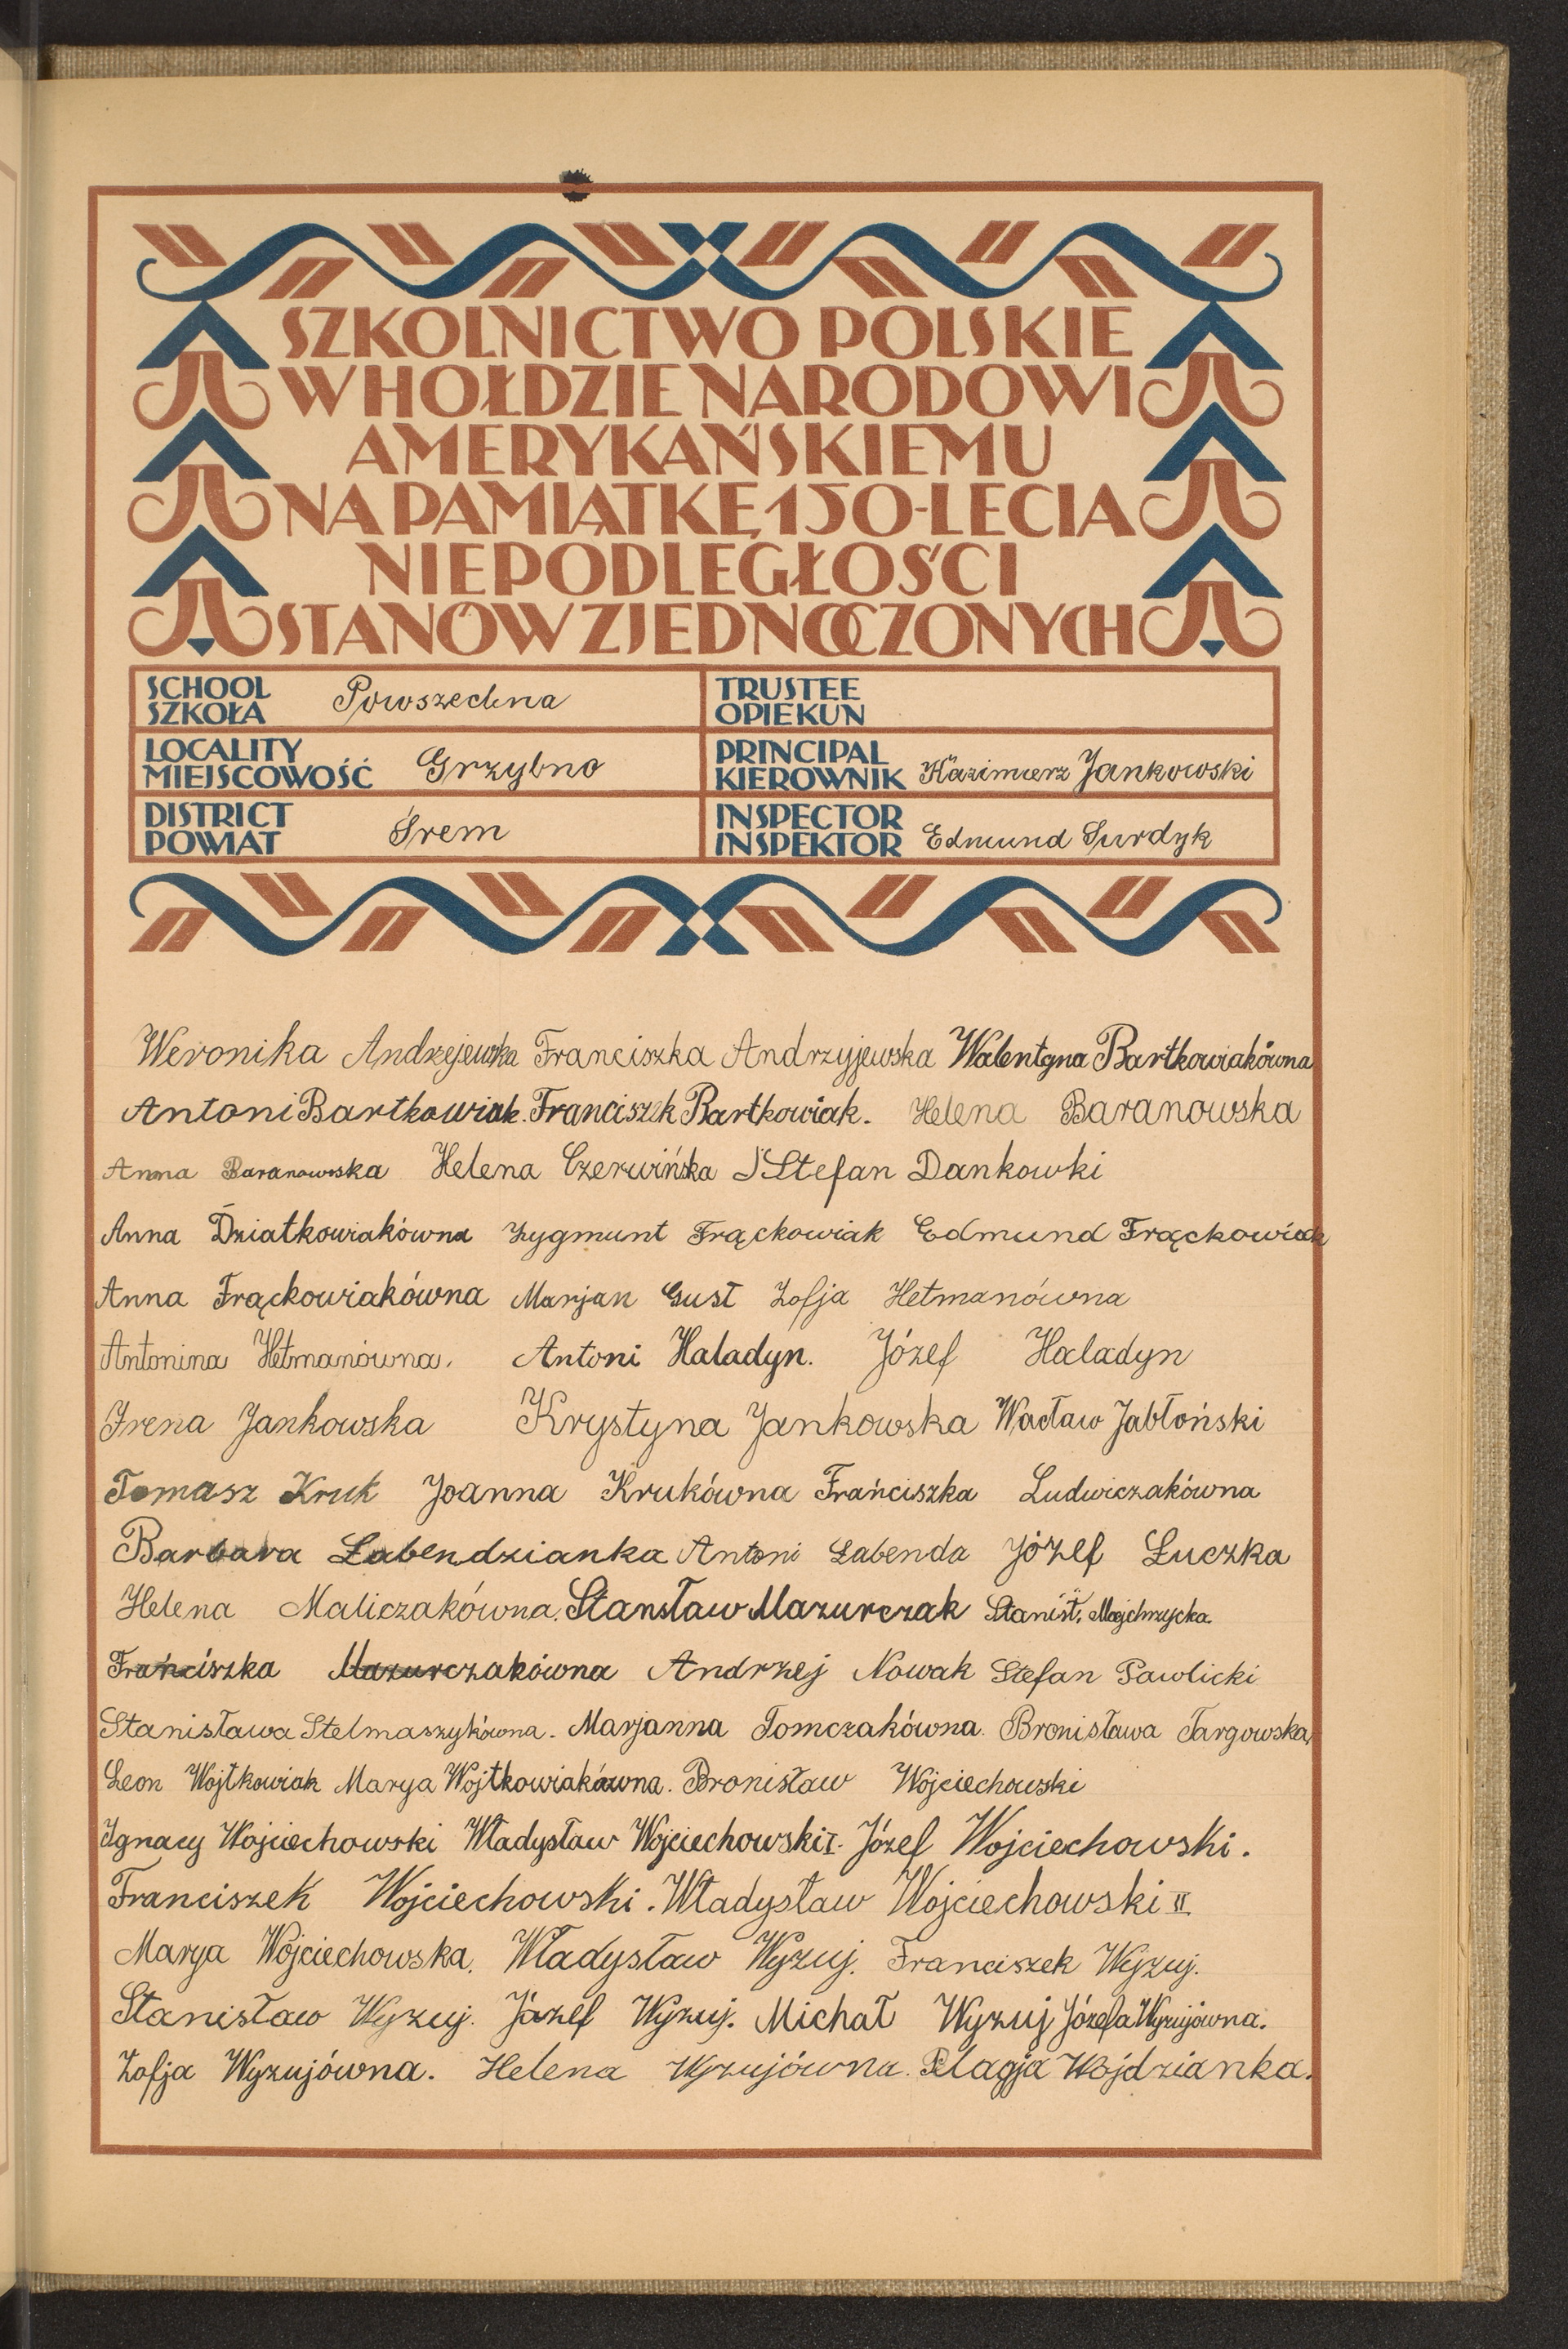 SZKOLNICTWO POLSKIE
W HOŁDZIE NARODOWI
AMERYKAŃSKIEMU
NA PAMIĄTKĘ 150-LECIA
NIEPODLEGŁOŚCI
STANÓW ZJEDNOCZONYCH
SCHOOL
SZKOŁA Powszechna
TRUSTEE
OPIEKUN
LOCALITY
MIEJSCOWOŚĆ Grzybno
PRINCIPAL
KIEROWNIK Kazimierz Jankowski
DISTRICT
POWIAT Śrem
INSPECTOR
INSPEKTOR Edmund Surdyk
Weronika Andrzejewska Franciszka Andrzyjewska Walentyna Bartkowiakówna
Antoni Bartkowiak. Franciszk Bartkowiak. Helena Baranowska
Anna Baranowska Helena Czerwińska Stefan Dankowki
Anna Dziatkowiakówna Zygmunt Frąckowiak Edmund Frąckowiak
Anna Frąckowiakówna Marjan Gust Zofja Hetmanówna
Antonina Hetmanówna. Antoni Haladyn. Józef Haladyn
Irena Jankowska Krystyna Jankowska Wacław Jabłoński
Tomasz Kruk Joanna Krukówna Frańciszka Ludwiczakówna
Barbara Łabendzianka Antoni Łabenda Józef Łuczka
Helena Maliczakówna. Stansław Mazurczak Stanisł. Majchrzycka.
Frańciszka Mazurczakówna Andrzej Nowak Stefan Pawlicki
Stanisława Stelmaszykówna. Marjanna Tomczakówna. Bronisława Targowska
Leon Wojtkowiak Marya Wojtkowiakówna. Bronisław Wojciechowski
Ignacy Wojciechowski Władysław Wojciechowski I. Józef Wojciechowski.
Franciszek Wojciechowski. Władysław Wojciechowski II.
Marya Wojciechowska. Władysław Wyzuj. Franciszek Wyzuj.
Stanisław Wyzuj. Józef Wyzuj. Michał Wyzuj Józefa Wyzujówna.
Zofja Wyzujówna. Helena Wyzujówna. Pelagja Wojdzianka.